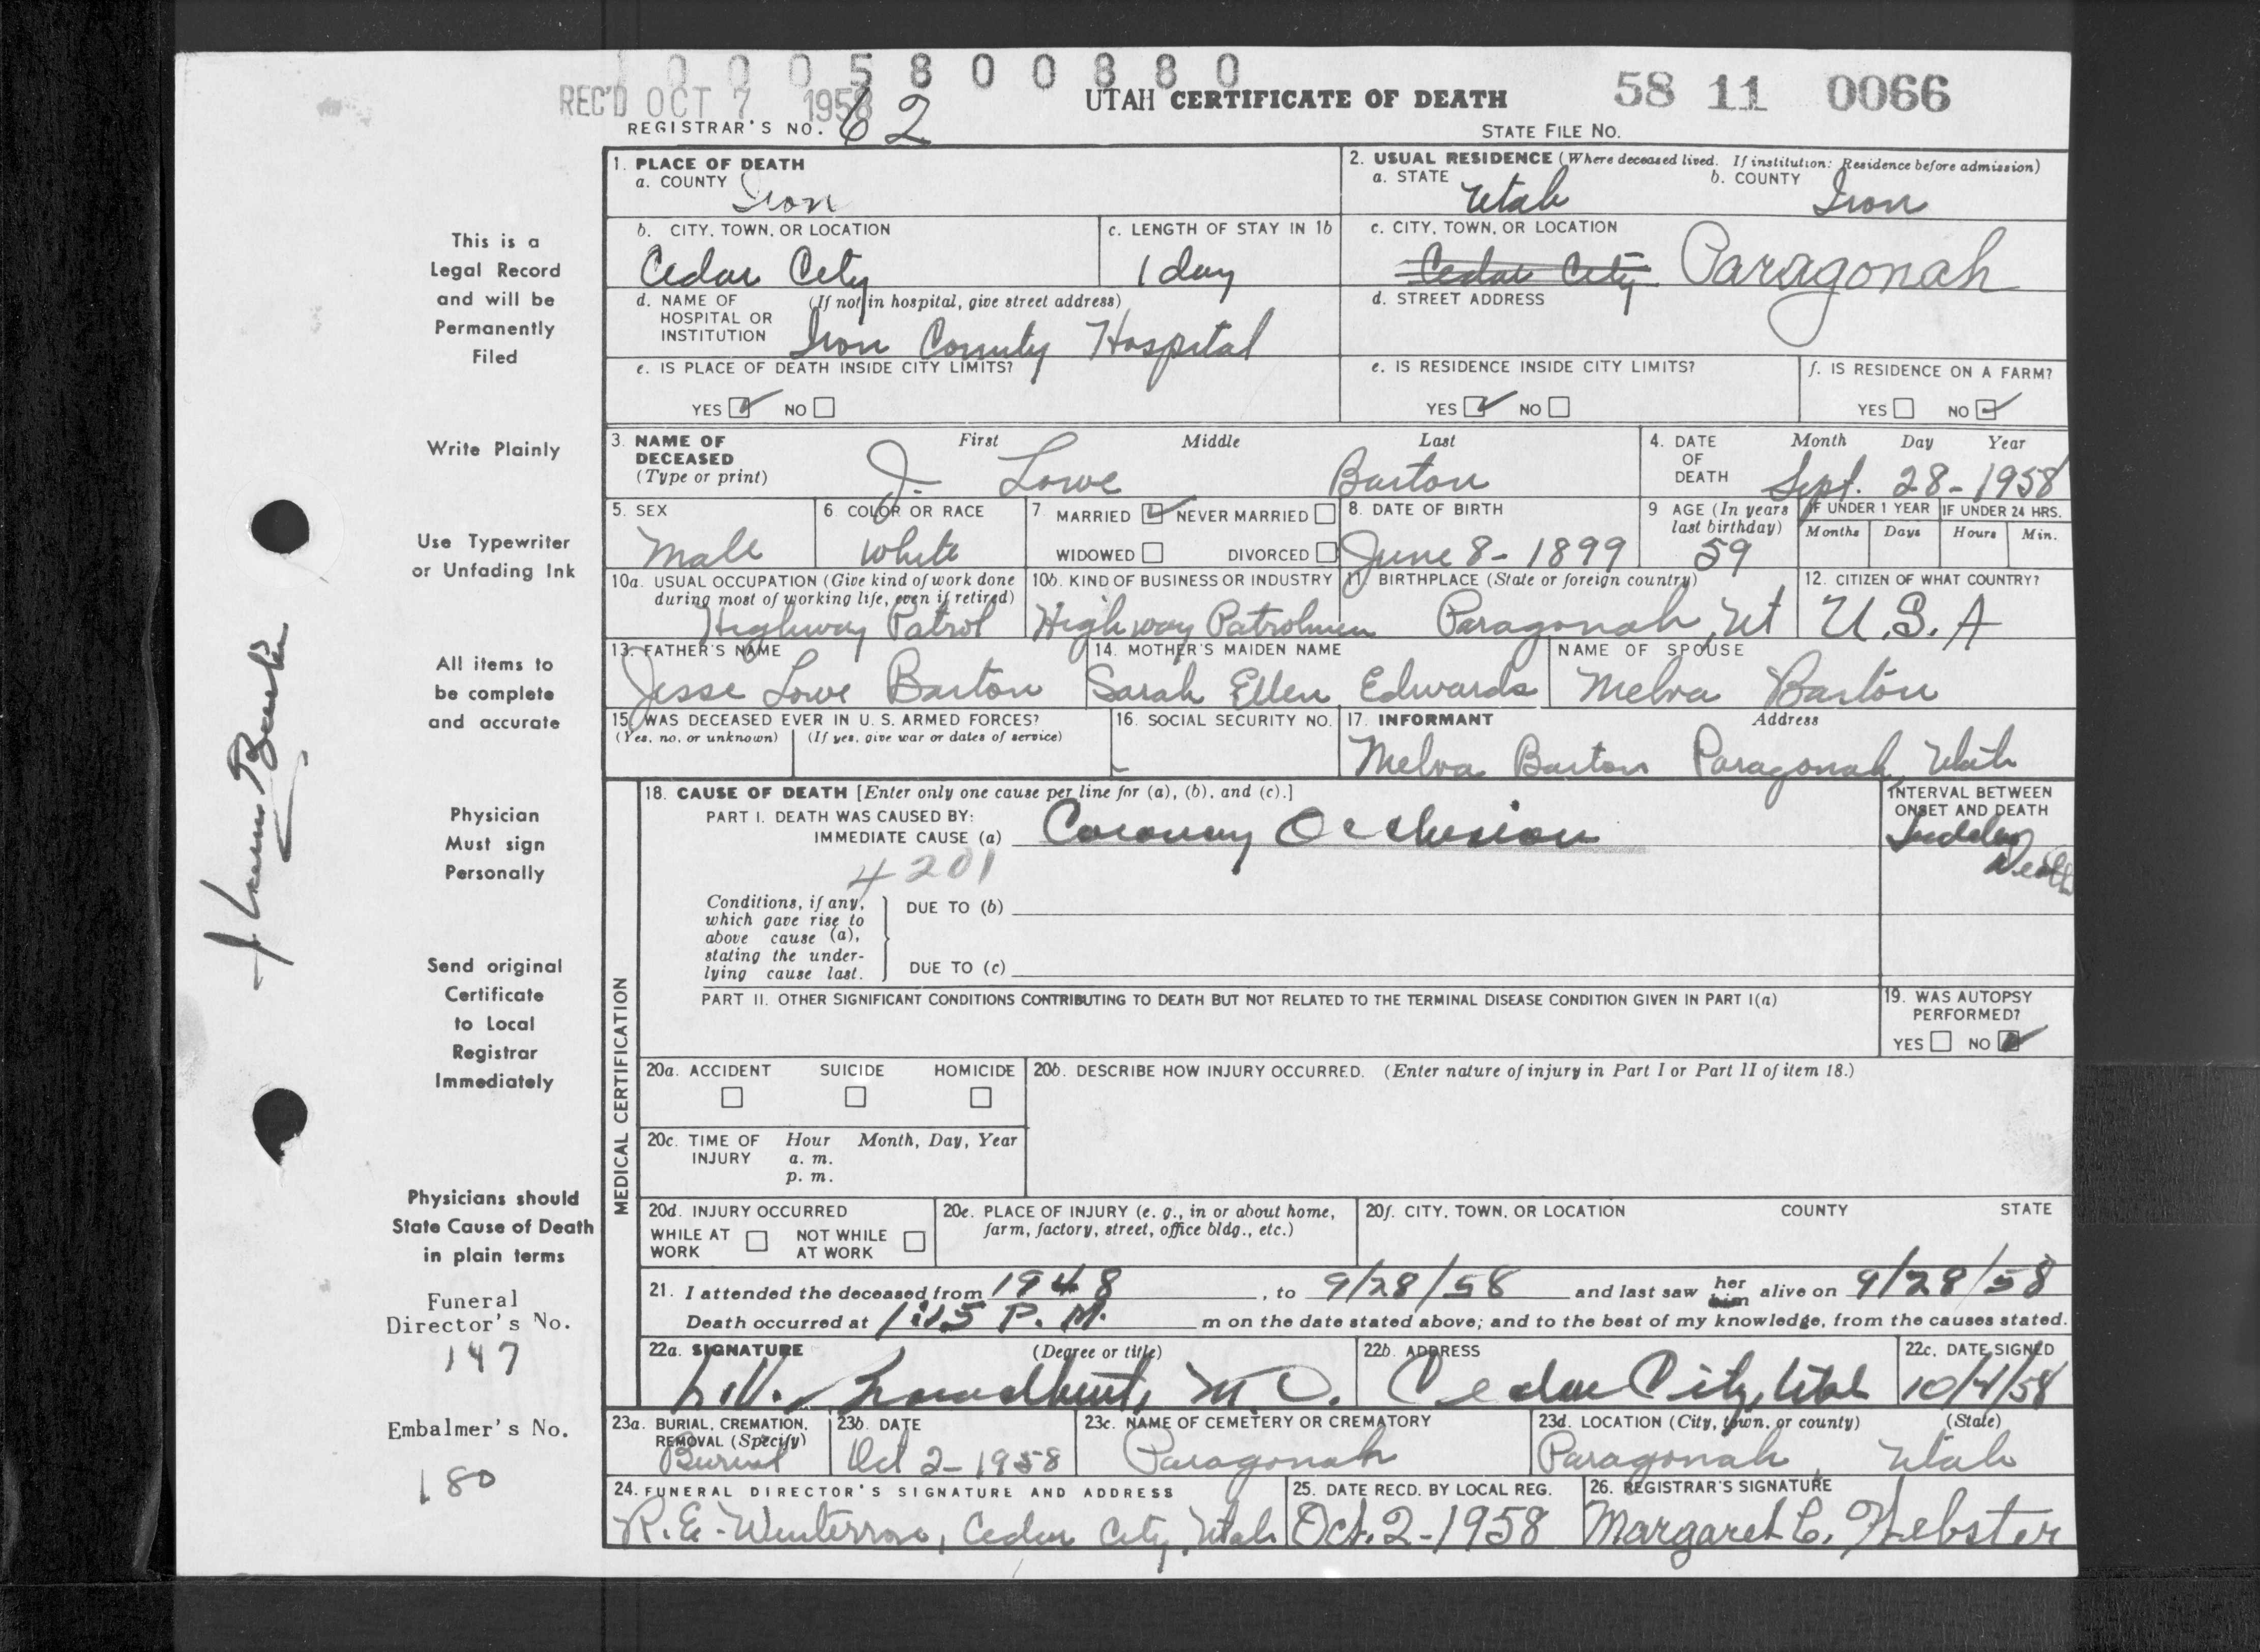 0 0 0 5 8 0 0 8 8 0
REC'D OCT 7 1958
UTAH CERTIFICATE OF DEATH
58 11 0066
REGISTRAR'S NO. 62
STATE FILE NO.
1. PLACE OF DEATH
a. COUNTY Iron
2. USUAL RESIDENCE (Where deceased lived. If institution: Residence before admission)
a. STATE Utah b. COUNTY Iron
b. CITY, TOWN, OR LOCATION
Cedar City
c. LENGTH OF STAY IN 1b
1 day
c. CITY, TOWN, OR LOCATION
Cedar City Paragonah
d. NAME OF (If not in hospital, give street address)
HOSPITAL OR
INSTITUTION Iron County Hospital
d. STREET ADDRESS
e. IS PLACE OF DEATH INSIDE CITY LIMITS?
YES NO
e. IS RESIDENCE INSIDE CITY LIMITS?
YES NO
f. IS RESIDENCE ON A FARM?
YES NO
3. NAME OF DECEASED (Type or print)
First Middle Last
J. Lowe Barton
4. DATE OF DEATH
Month Day Year
Sept. 28-1958
5. SEX
Male
6. COLOR OR RACE
White
7. MARRIED NEVER MARRIED
WIDOWED DIVORCED
8. DATE OF BIRTH
June 8-1899
9 AGE (In years last birthday)
59
IF UNDER 1 YEAR IF UNDER 24 HRS.
Months Days Hours Min.
10a. USUAL OCCUPATION (Give kind of work done
during most of working life, even if retired)
Highway Patrol
10b. KIND OF BUSINESS OR INDUSTRY
Highway Patrolmen
11. BIRTHPLACE (State or foreign country)
Paragonah, Ut
12. CITIZEN OF WHAT COUNTRY?
U.S.A
13. FATHER'S NAME
Jesse Lowe Barton
14. MOTHER'S MAIDEN NAME
Sarah Ellen Edwards
NAME OF SPOUSE
Melva Barton
15. WAS DECEASED EVER IN U. S. ARMED FORCES?
(Yes, no, or unknown) (If yes, give war or dates of service)
16. SOCIAL SECURITY NO.
17. INFORMANT Address
Melva Barton Paragonah, Utah
MEDICAL CERTIFICATION
18. CAUSE OF DEATH [Enter only one cause per line for (a), (b), and (c).]
PART I. DEATH WAS CAUSED BY:
IMMEDIATE CAUSE (a) Coronary Occlusion
4201
INTERVAL BETWEEN
ONSET AND DEATH
Sudden
Death
Conditions, if any,
which gave rise to
above cause (a),
stating the under-
lying cause last.
DUE TO (b)
DUE TO (c)
PART II. OTHER SIGNIFICANT CONDITIONS CONTRIBUTING TO DEATH BUT NOT RELATED TO THE TERMINAL DISEASE CONDITION GIVEN IN PART I(a)
19. WAS AUTOPSY
PERFORMED?
YES NO
20a. ACCIDENT SUICIDE HOMICIDE
20b. DESCRIBE HOW INJURY OCCURRED. (Enter nature of injury in Part I or Part II of item 18.)
20c. TIME OF INJURY
Hour Month, Day, Year
a. m.
p. m.
20d. INJURY OCCURRED
WHILE AT WORK NOT WHILE AT WORK
20e. PLACE OF INJURY (e. g., in or about home,
farm, factory, street, office bldg., etc.)
20f. CITY, TOWN, OR LOCATION COUNTY STATE
21. I attended the deceased from 1948, to 9/28/58 and last saw her him alive on 9/28/58
Death occurred at 1:15 P.M. m on the date stated above; and to the best of my knowledge, from the causes stated.
22a. SIGNATURE (Degree or title)
M.D.
22b. ADDRESS
Cedar City, Utah
22c. DATE SIGNED
10/4/58
23a. BURIAL, CREMATION,
REMOVAL (Specify)
Burial
23b. DATE
Oct 2-1958
23c. NAME OF CEMETERY OR CREMATORY
Paragonah
23d. LOCATION (City, town, or county) (State)
Paragonah, Utah
24. FUNERAL DIRECTOR'S SIGNATURE AND ADDRESS
R.E. Winterrose, Cedar City, Utah
25. DATE RECD. BY LOCAL REG.
Oct. 2-1958
26. REGISTRAR'S SIGNATURE
Margaret C. Webster
This is a
Legal Record
and will be
Permanently
Filed
Write Plainly
Use Typewriter
or Unfading Ink
All items to
be complete
and accurate
Physician
Must sign
Personally
Send original
Certificate
to Local
Registrar
Immediately
Physicians should
State Cause of Death
in plain terms
Funeral
Director's No.
147
Embalmer's No.
180